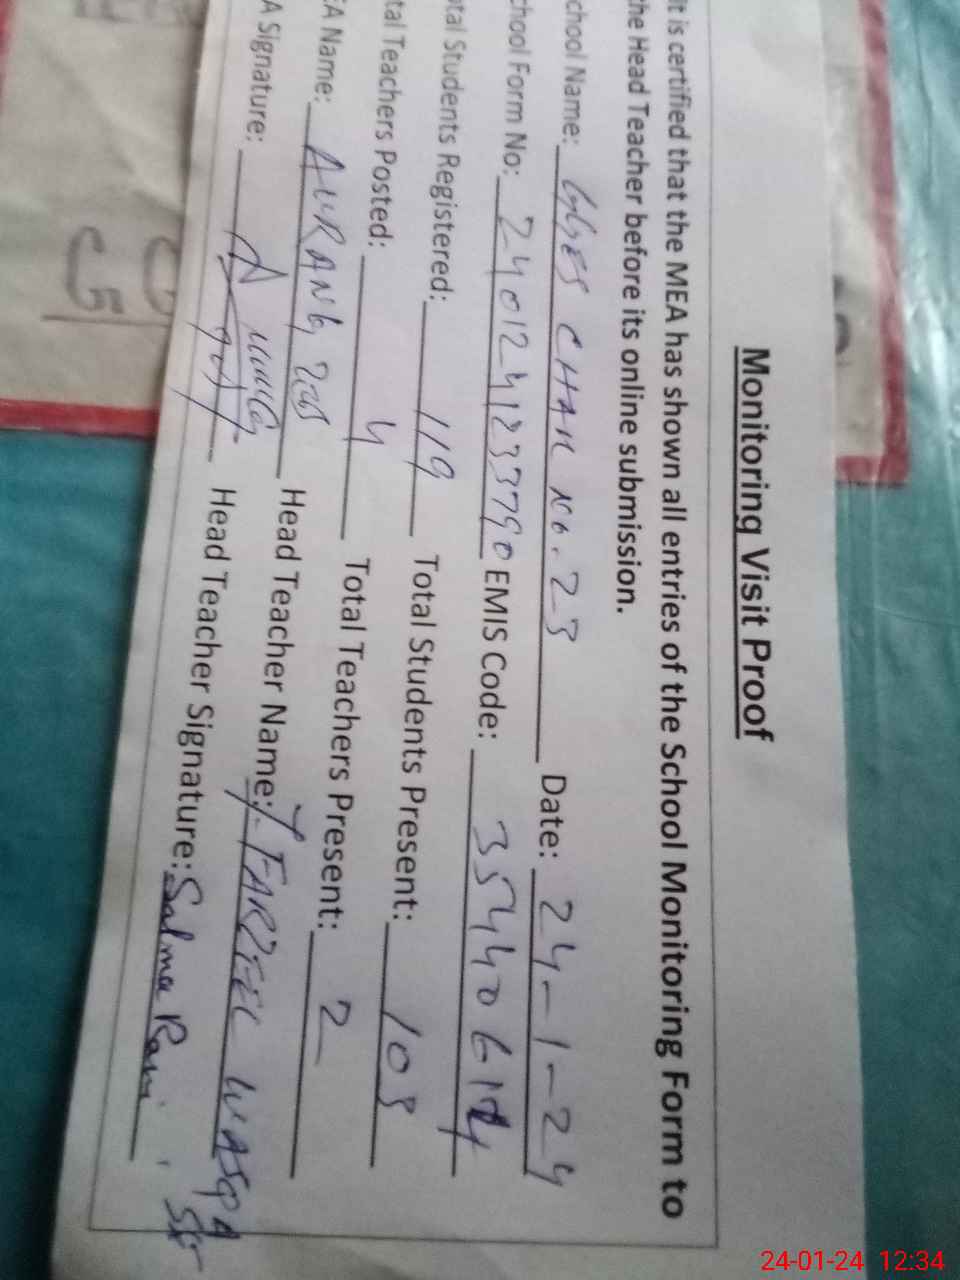 Monitoring Visit Proof
It is certified that the MEA has shown all entries of the School Monitoring Form to
the Head Teacher before its online submission.
chool Name: GGES CHAK No. 23 Date: 24-1-24
chool Form No: 2401241233790 EMIS Code: 35440614
otal Students Registered: 119 Total Students Present: 103
tal Teachers Posted: 4 Total Teachers Present: 2
EA Name: AURANG Head Teacher Name:
A Signature: Head Teacher Signature: Salma Rani
24-01-24 12:34